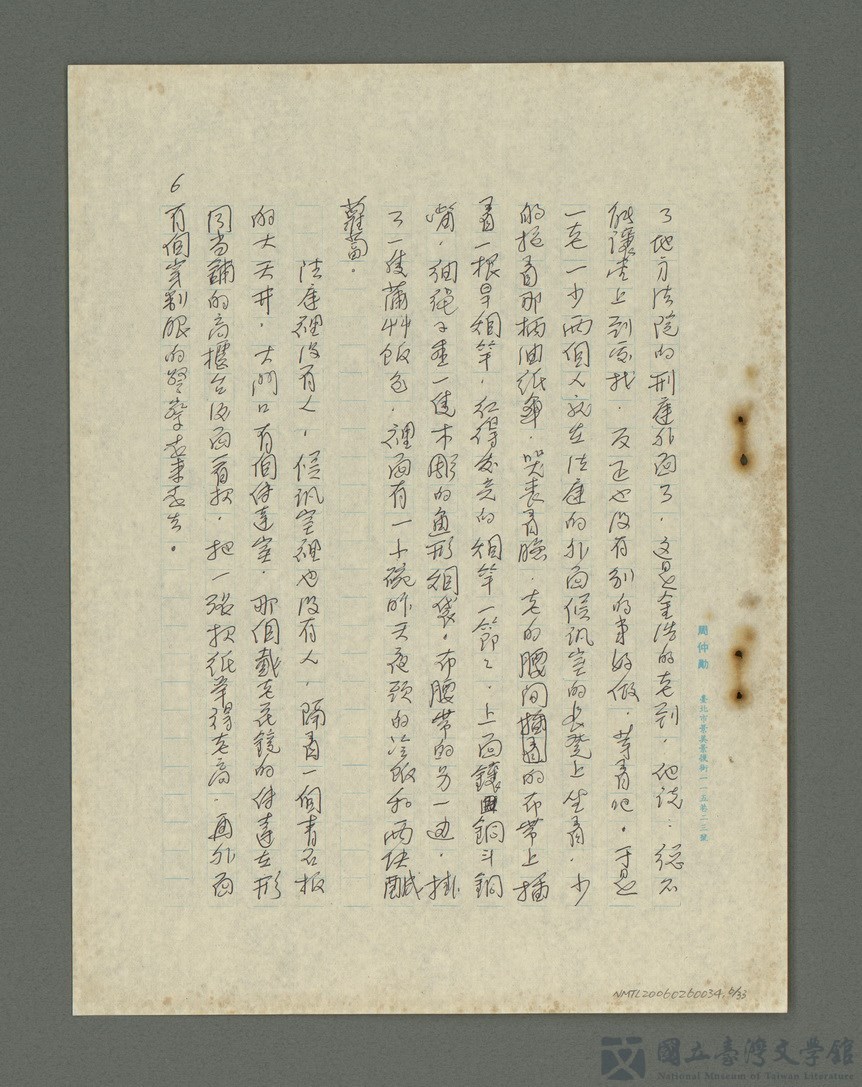 周仲勛 臺北市景美景後街一一五巷二三號
了地方法院的刑庭外面了。這是金浩的老到，他說：總不
能讓堂上到處找。反正也沒有別的事好做。等着吧。于是
一老一少兩個人就在法庭的外面候訊室的長凳上坐着。少
的抱着那柄油紙傘，哭喪着臉，老的腰間的布帶上插
着一根旱烟竿，紅得發亮的烟竿一節々，上面鑲銅斗銅
嘴，細繩子垂一隻木彫的魚形烟袋。布腰帶的另一邊，掛
了一隻蒲艸飯包，裡面有一小碗昨天夜頭的冷飯和兩塊鹹
蘿蔔。
法庭裡沒有人，候訊室裡也沒有人，隔着一個青石板
的大天井，大門口有個傳達室，那個戴老花鏡的傳達在形
同當舖的高櫃台後面看報，把一張報紙舉得老高，再外面
有個穿制服的警察走來走去。
6
NMTL20060260034. 6/33
國立臺灣文學館
National Museum of Taiwan Literature